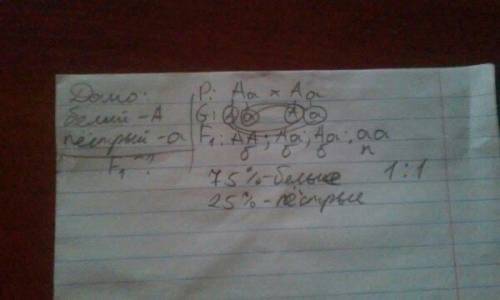 Дано:
белый - А
пёстрый - а
F₁ - ?
P: Аа × Аа
G: А а А а
F₁: АА; Аа; Аа; аа
б б б п
75% - белые 1:1
25% - пёстрые